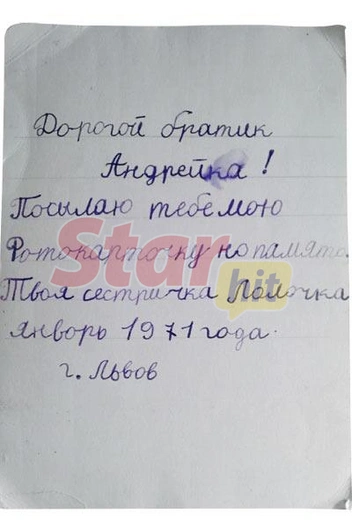 Дорогой братик
Андрейка!
Посылаю тебе мою
Фотокарточку на память.
Твоя сестричка Лолочка
январь 1971 года.
г. Львов
Star
hit